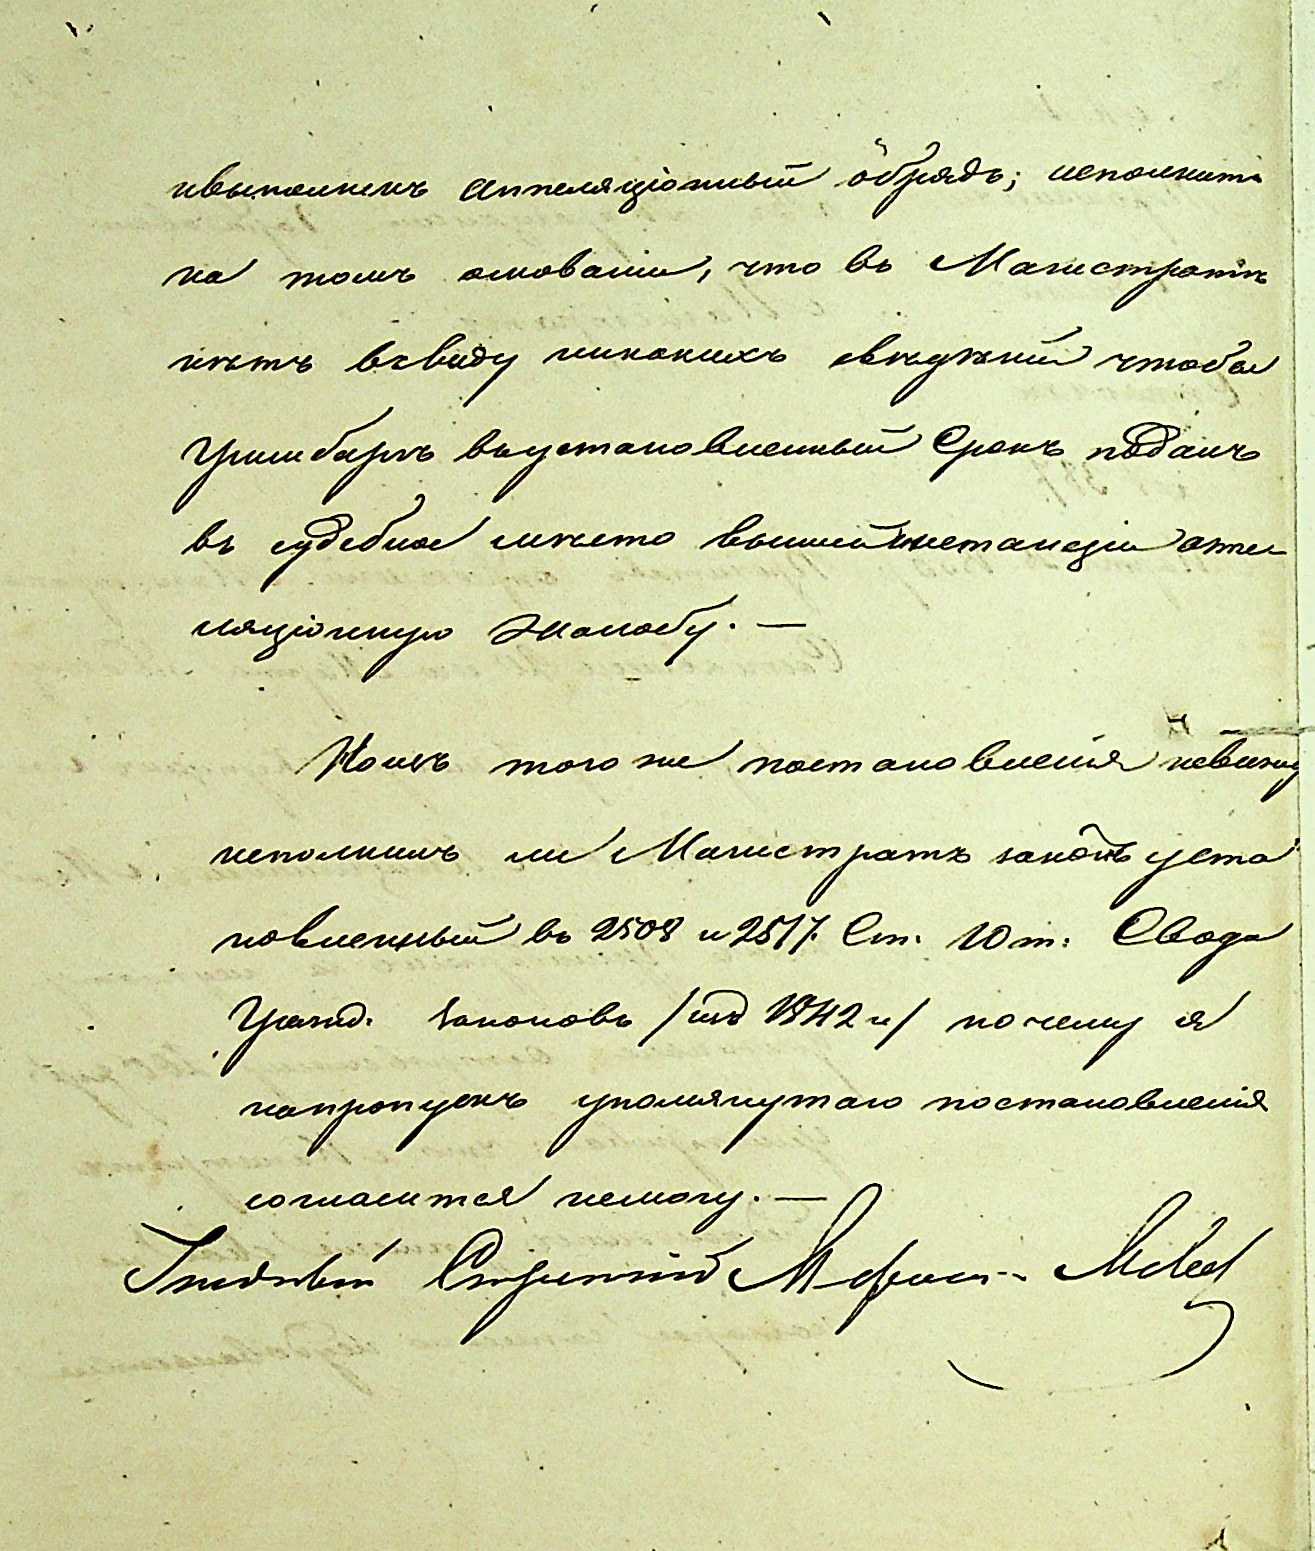 ивыполненъ аппеляціонный обрядъ; исполнить
на томъ основаніи, что въ Магистратѣ
нѣтъ ввиду никакихъ свѣдѣній чтобы
Гринбергъ въустановленный срокъ подалъ
въ судебное мѣсто высшей инстанціи аппе
ляціонную жалобу. —
Изъ того же постановленія невижу
исполнилъ ли Магистратъ законъ уста
новленный въ 2508 и 2517 Ст. 10 т. Свода
Гражд. Законовъ /изд 1842 г/ почему я
напропускъ упомянутаго постановленія
согласится немогу. —
Уѣздный Стряпчій